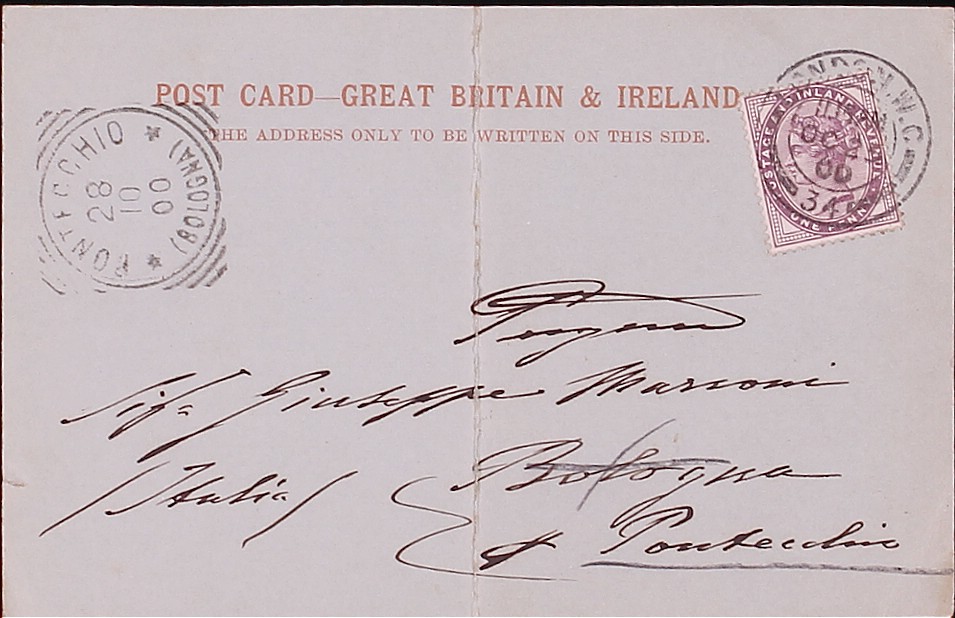 POST CARD—GREAT BRITAIN & IRELAND
THE ADDRESS ONLY TO BE WRITTEN ON THIS SIDE.
PONTECCHIO
(BOLOGNA)
28
10
00
LONDON.W.C.
OC
00
34
POSTAGE AND INLAND REVENUE
ONE PENNY
Giuseppe Marconi
Bologna
(Italia)
Pontecchio